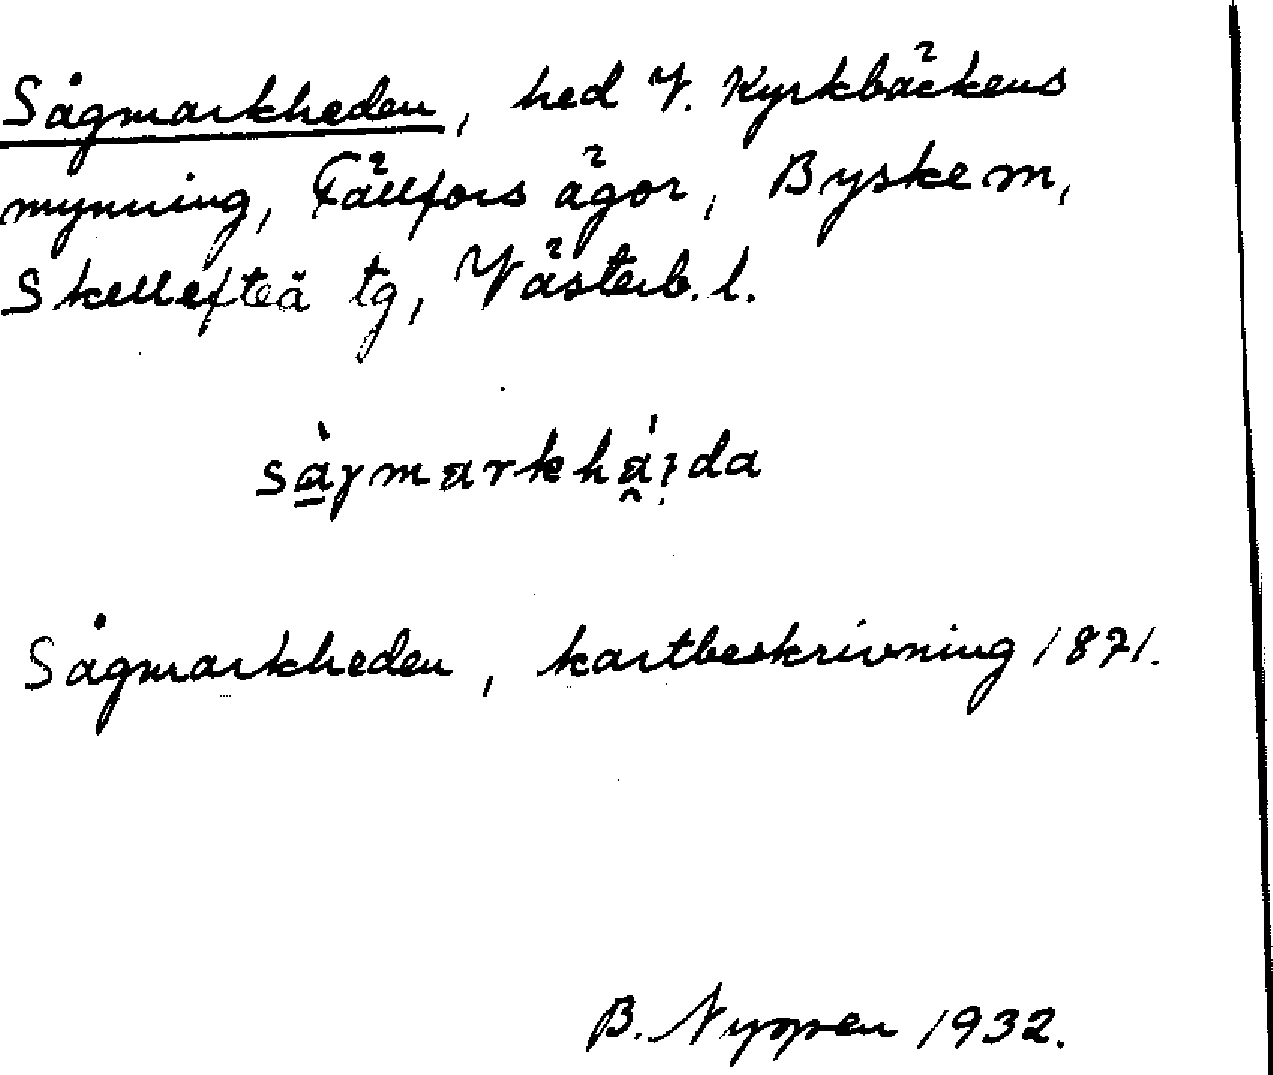 Sågmarkheden, hed V. Kyrkbäckens
mynning, Fällfors ägor, Byske sn,
Skellefteå tg, Västerb. l.
Sågmarkheden, kartbeskrivning 1871.
B. Nyopen 1932.